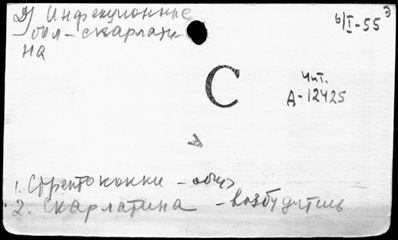 Инфекционные
бол - скарлати
на
6/I-55 э
С
Чит.
Д-12425
1. Стрептококки - общ>
2. Скарлатина - возбудитель